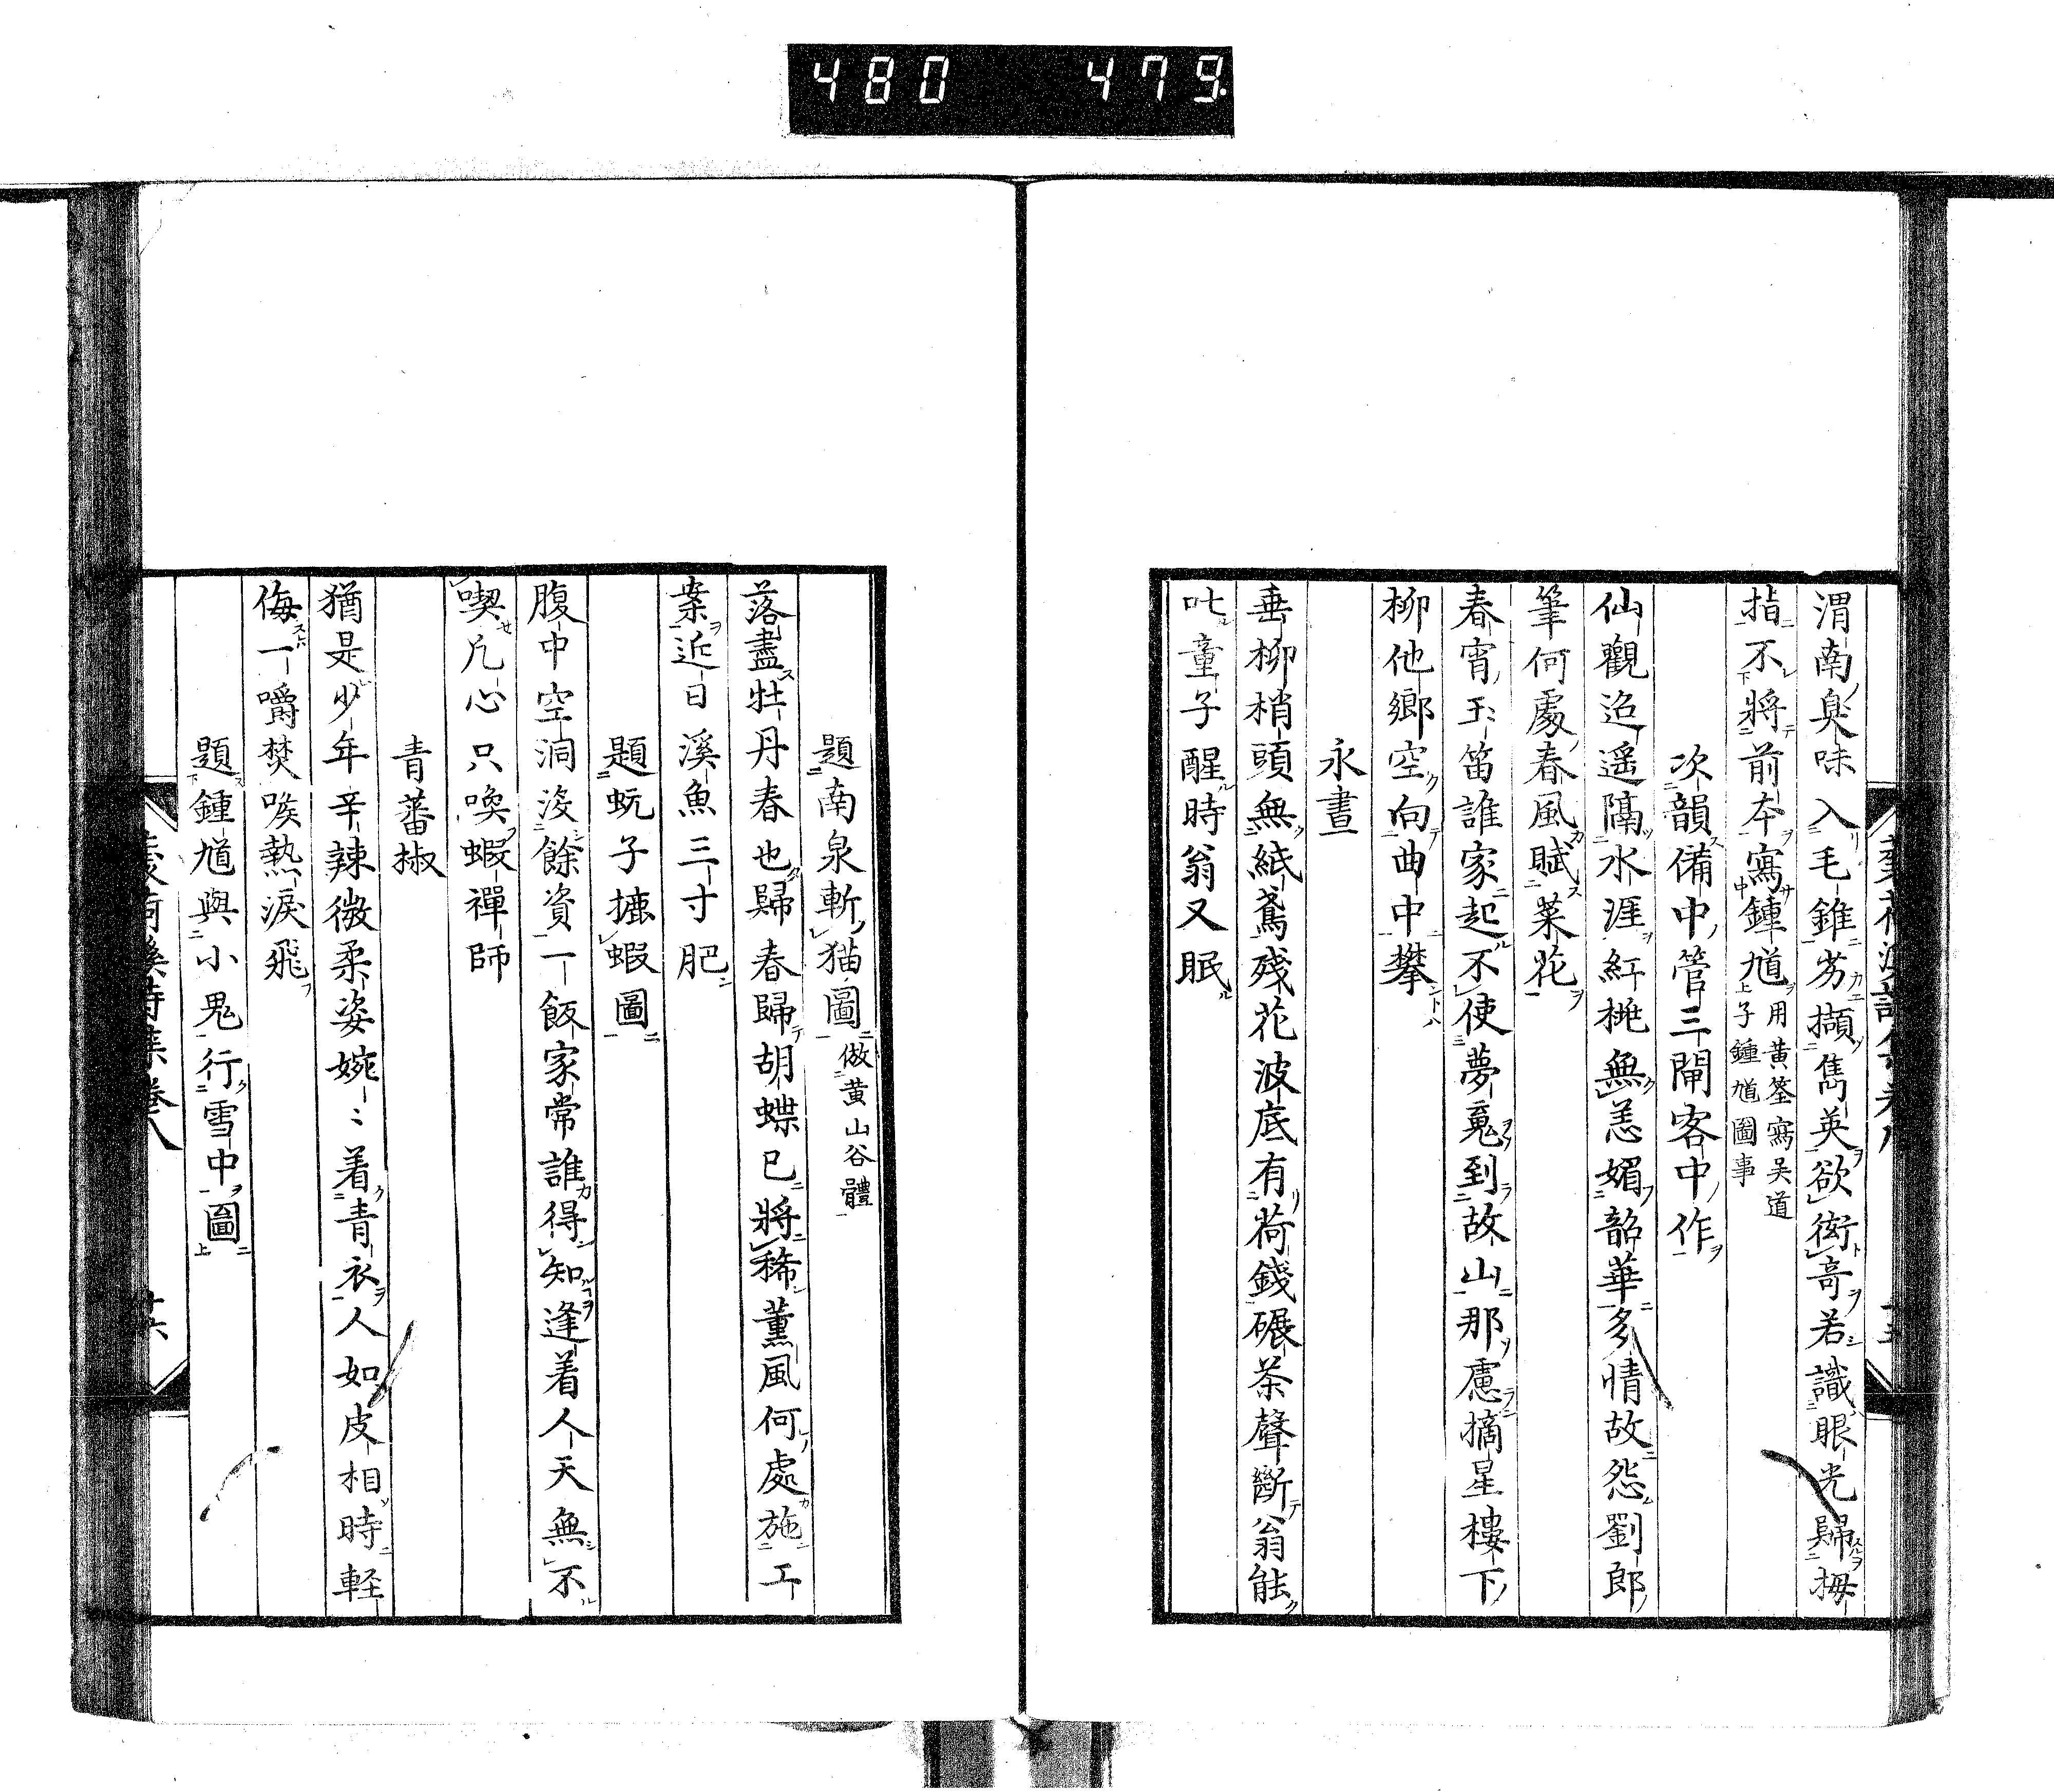 480 479
渭南臭味入毛錐劣擷雋英欲衒奇若識眼光歸拇
指不將前本寫鍾馗用黄筌寫吴道
子鍾馗圖事
次韻備中管三閘客中作
仙觀迢遥隔水涯紅桃無恙媚韶華多情故怨劉郎
筆何處春風賦菜花
春宵玉笛誰家起不使夢䰟到故山那慮摘星樓下
柳他鄉空向曲中攀
永晝
垂柳梢頭無紙鳶殘花波底有荷錢碾茶聲斷翁能
叱童子醒時翁又眠
題南泉斬猫圖倣黄山谷體
落盡牡丹春也歸春歸胡蝶已將稀薫風何處施工
業近日溪魚三寸肥
題蚬子摝蝦圖
腹中空洞没餘資一飯家常誰得知逢着人天無不
喫凡心只喚蝦禪師
青蕃椒
猶是少年辛辣微柔姿婉〻着青衣人如皮相時軽
侮一嚼焚喉熱淚飛
題鍾馗與小鬼行雪中圖
詩集卷八
廿六